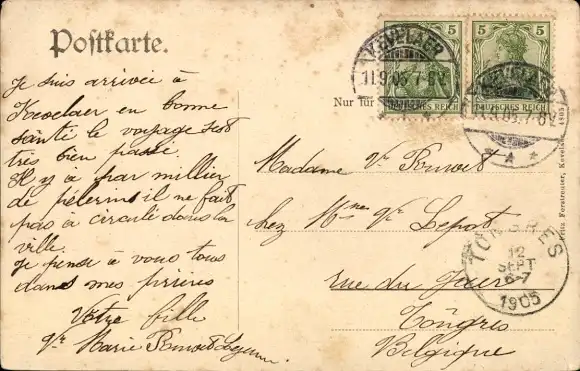 Postkarte.
5
5
DEUTSCHES REICH
DEUTSCHES REICH
KEVELAER
11.9.05.7-8V.
KEVELAER
11.9.05.7-8V.
Nur für
Je suis arrivée à
Kevelaer en bonne
santé le voyage s'est
très bien passé.
Il y à par million
de pélerins il ne fait
pas à circulé dans la
ville.
Je pense à vous tous
dans mes prières
Votre fille
Vve Marie
Madame Ve
chez Mme Ve Lepot
rue du
Tongres
Belgique
TONGRES
12
SEPT
6-7
1905